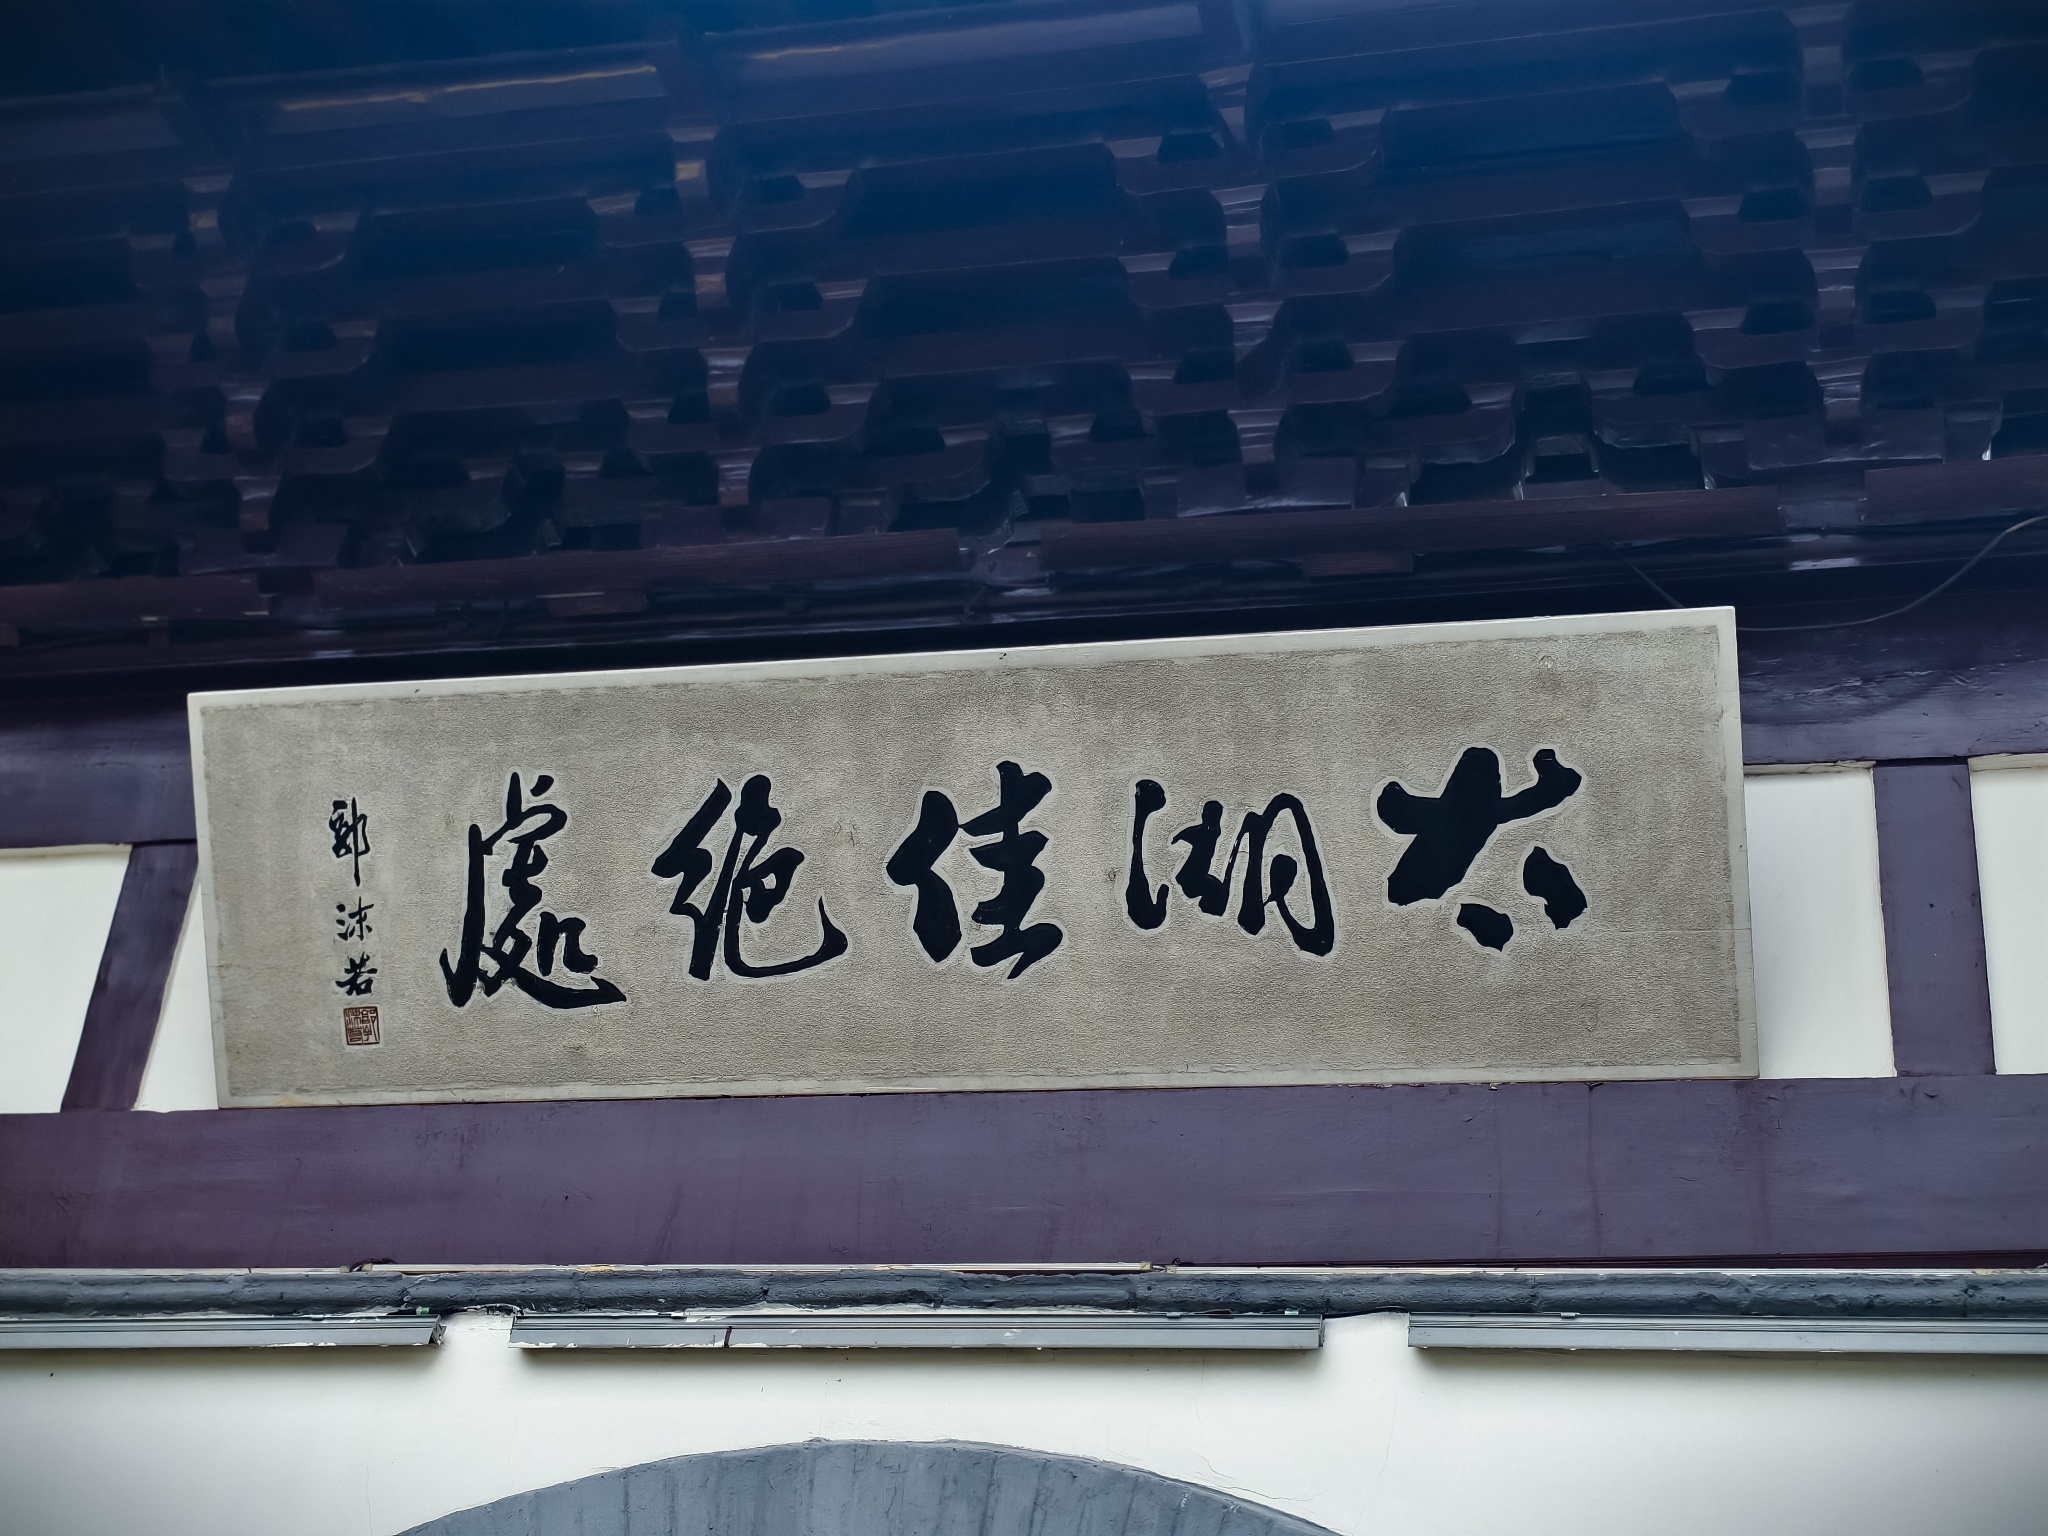 太湖佳絶處
郭沫若